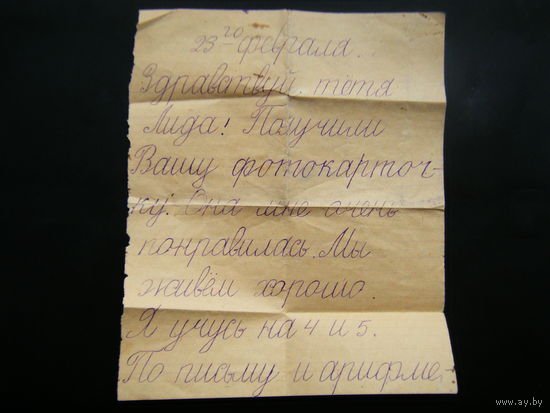 23-го февраля.
Здравствуй, тётя
Лида! Получили
Вашу фотокарточ-
ку. Она мне очень
понравилась. Мы
живём хорошо.
Я учусь на 4 и 5.
По письму и арифме-
www.ay.by